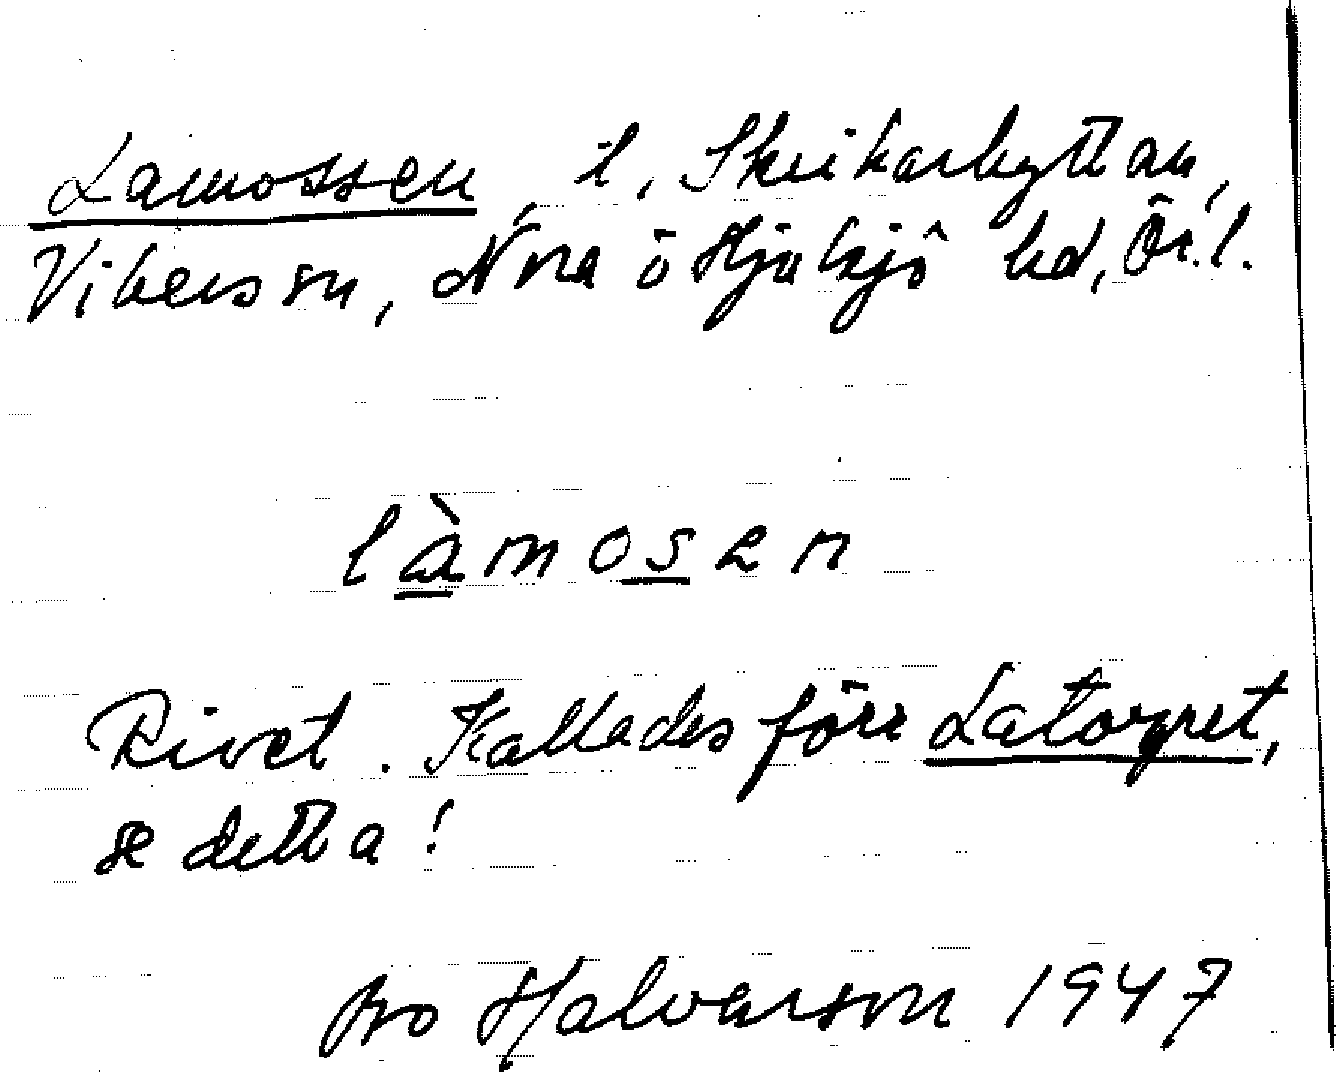 Lamossen, t, Skrikarhyttan,
Vikersvn, Nora o Hjulsjö hd, Ör.l.
làmosen
Rivet. Kallades förr Latorpet,
se detta!
Bo Halvarson 1947